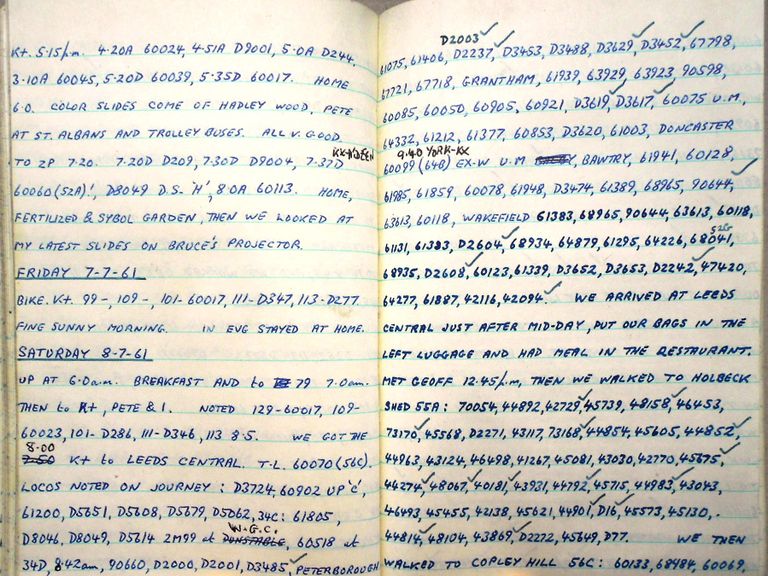 K+. 5.15p.m. 4.20A 60024, 4.51A D9001, 5.0A D244,
3.10A 60045, 5.20D 60039, 5.35D 60017. HOME
6.0. COLOR SLIDES COME OF HADLEY WOOD, PETE
AT ST. ALBANS AND TROLLEY BUSES. ALL V. GOOD.
KX-ABEEN
TO ZP 7.20. 7.20D D209, 7.30D D9004, 7.37D
60060 (52A)!, D8049 D.S. 'H', 8.0A 60113. HOME,
FERTILIZED & SYBOL GARDEN, THEN WE LOOKED AT
MY LATEST SLIDES ON BRUCE'S PROJECTOR.
FRIDAY 7-7-61
BIKE. K+. 99-, 109-, 101-60017, 111-D347, 113-D277
FINE SUNNY MORNING. IN EVG STAYED AT HOME.
SATURDAY 8-7-61
UP AT 6.0a.m. BREAKFAST AND to 79 7.0am.
THEN to K+, PETE & I. NOTED 129-60017, 109-
60023, 101-D286, 111-D346, 113 8.5. WE GOT THE
8.00
7.50 K+ to LEEDS CENTRAL. T.L. 60070 (56C).
LOCOS NOTED ON JOURNEY: D3724, 60902 UP 'C',
61200, D5651, D5608, D5679, D5062, 34C: 61805,
W.G.C.
D8046, D8049, D5614 2M99 at DUNSTABLE, 60518 at
34D, 8.42am, 90660, D2000, D2001, D3485, PETERBOROUGH
D2003
61075, 61406, D2237, D3453, D3488, D3629, D3452, 67798,
67721, 67718, GRANTHAM, 61939, 63929, 63923, 90598,
60085, 60050, 60905, 60921, D3619, D3617, 60075 U.M,
64332, 61212, 61377, 60853, D3620, 61003, DONCASTER
9.40 YORK-KX
60099 (64B) EX-W U.M BAWTRY, 61941, 60128,
61985, 61859, 60078, 61948, D3474, 61389, 68965, 90644,
63613, 60118, WAKEFIELD 61383, 68965, 90644, 63613, 60118,
52G
61131, 61383, D2604, 68934, 64879, 61295, 64226, 68041,
68935, D2608, 60123, 61339, D3652, D3653, D2242, 47420,
64277, 61887, 42116, 42094. WE ARRIVED AT LEEDS
CENTRAL JUST AFTER MID-DAY, PUT OUR BAGS IN THE
LEFT LUGGAGE AND HAD MEAL IN THE RESTAURANT.
MET GEOFF 12.45p.m, THEN WE WALKED TO HOLBECK
SHED 55A: 70054, 44892, 42729, 45739, 48158, 46453,
73170, 45568, D2271, 43117, 73168, 44854, 45605, 44852,
44963, 43124, 46498, 41267, 45081, 43030, 42770, 45675,
44274, 48067, 40181, 43931, 44792, 45715, 44983, 43043,
46493, 45455, 42138, 45621, 44901, D16, 45573, 45130.
44814, 48104, 43869, D2272, 45649, D77. WE THEN
WALKED TO COPLEY HILL 56C: 60133, 68484, 60069,